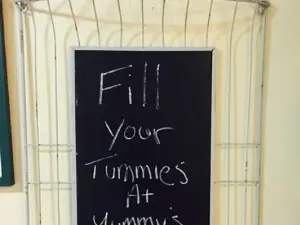 Fill
your
Tummies
At
yummy's